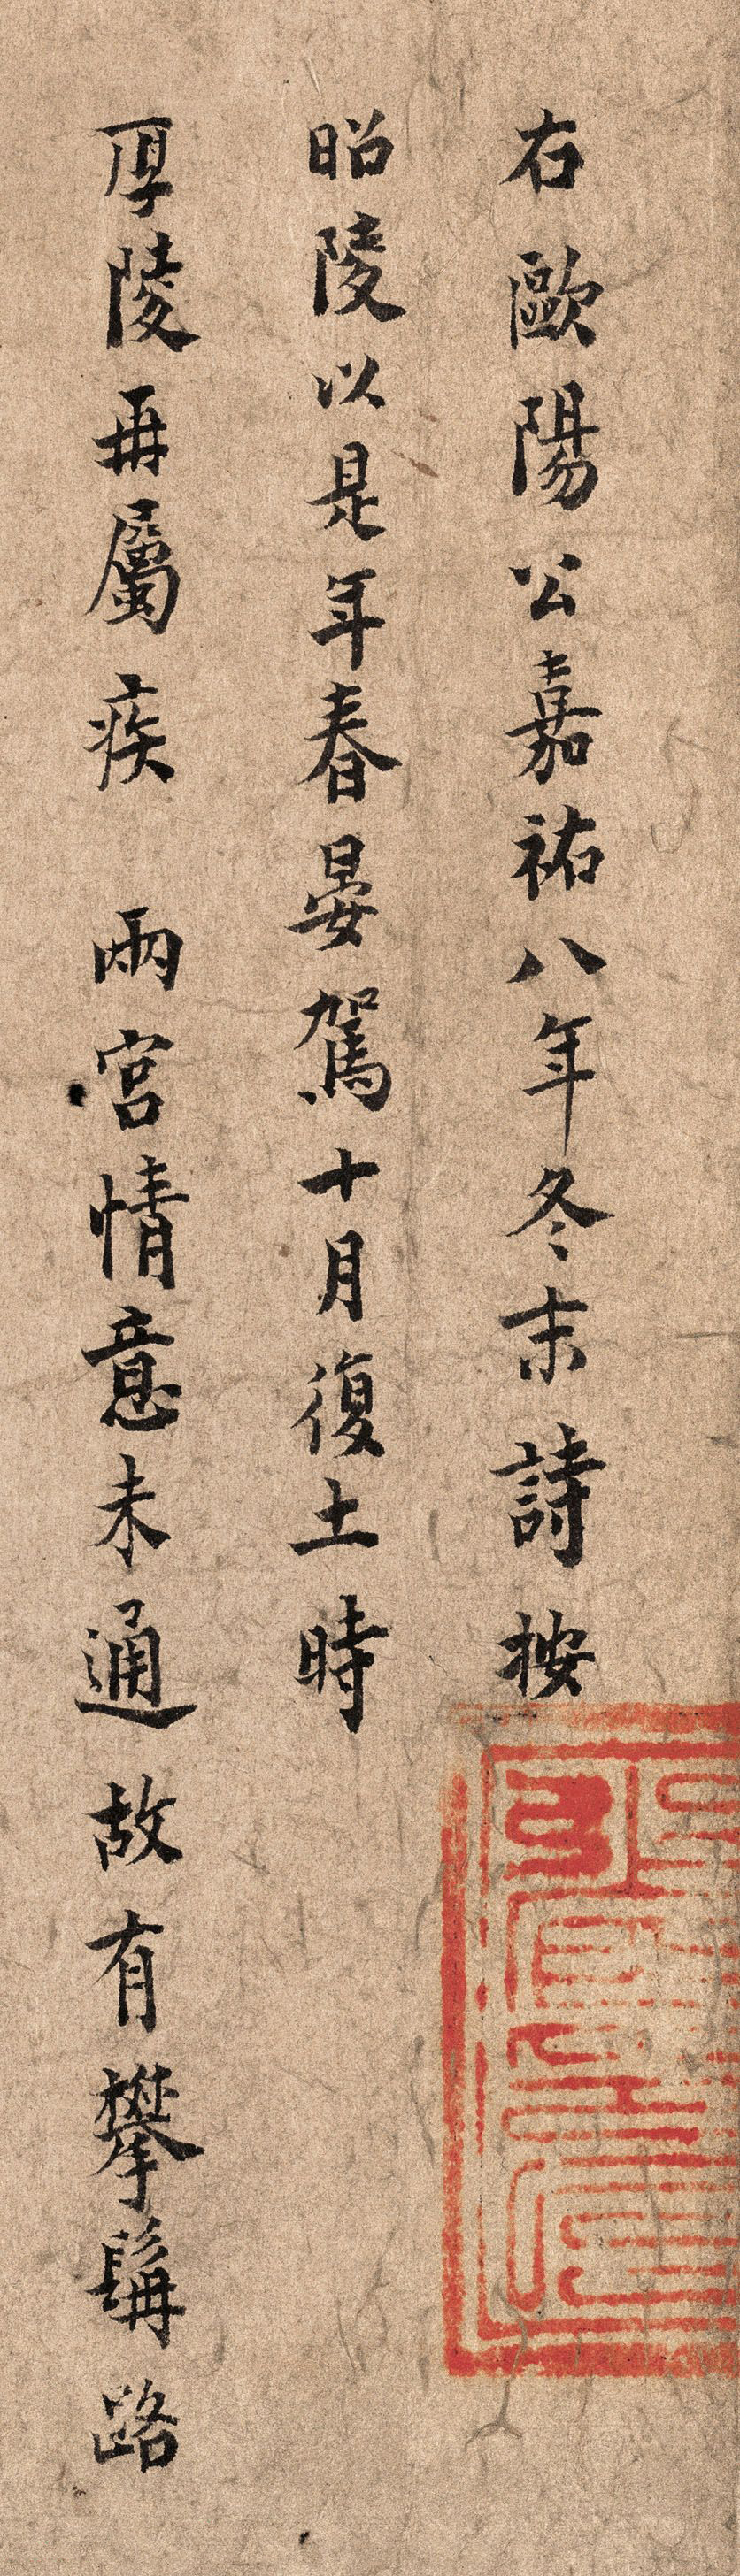 右歐陽公嘉祐八年冬末詩按
昭陵以是年春晏駕十月復土時
厚陵再屬疾 兩宮情意未通故有攀髯路